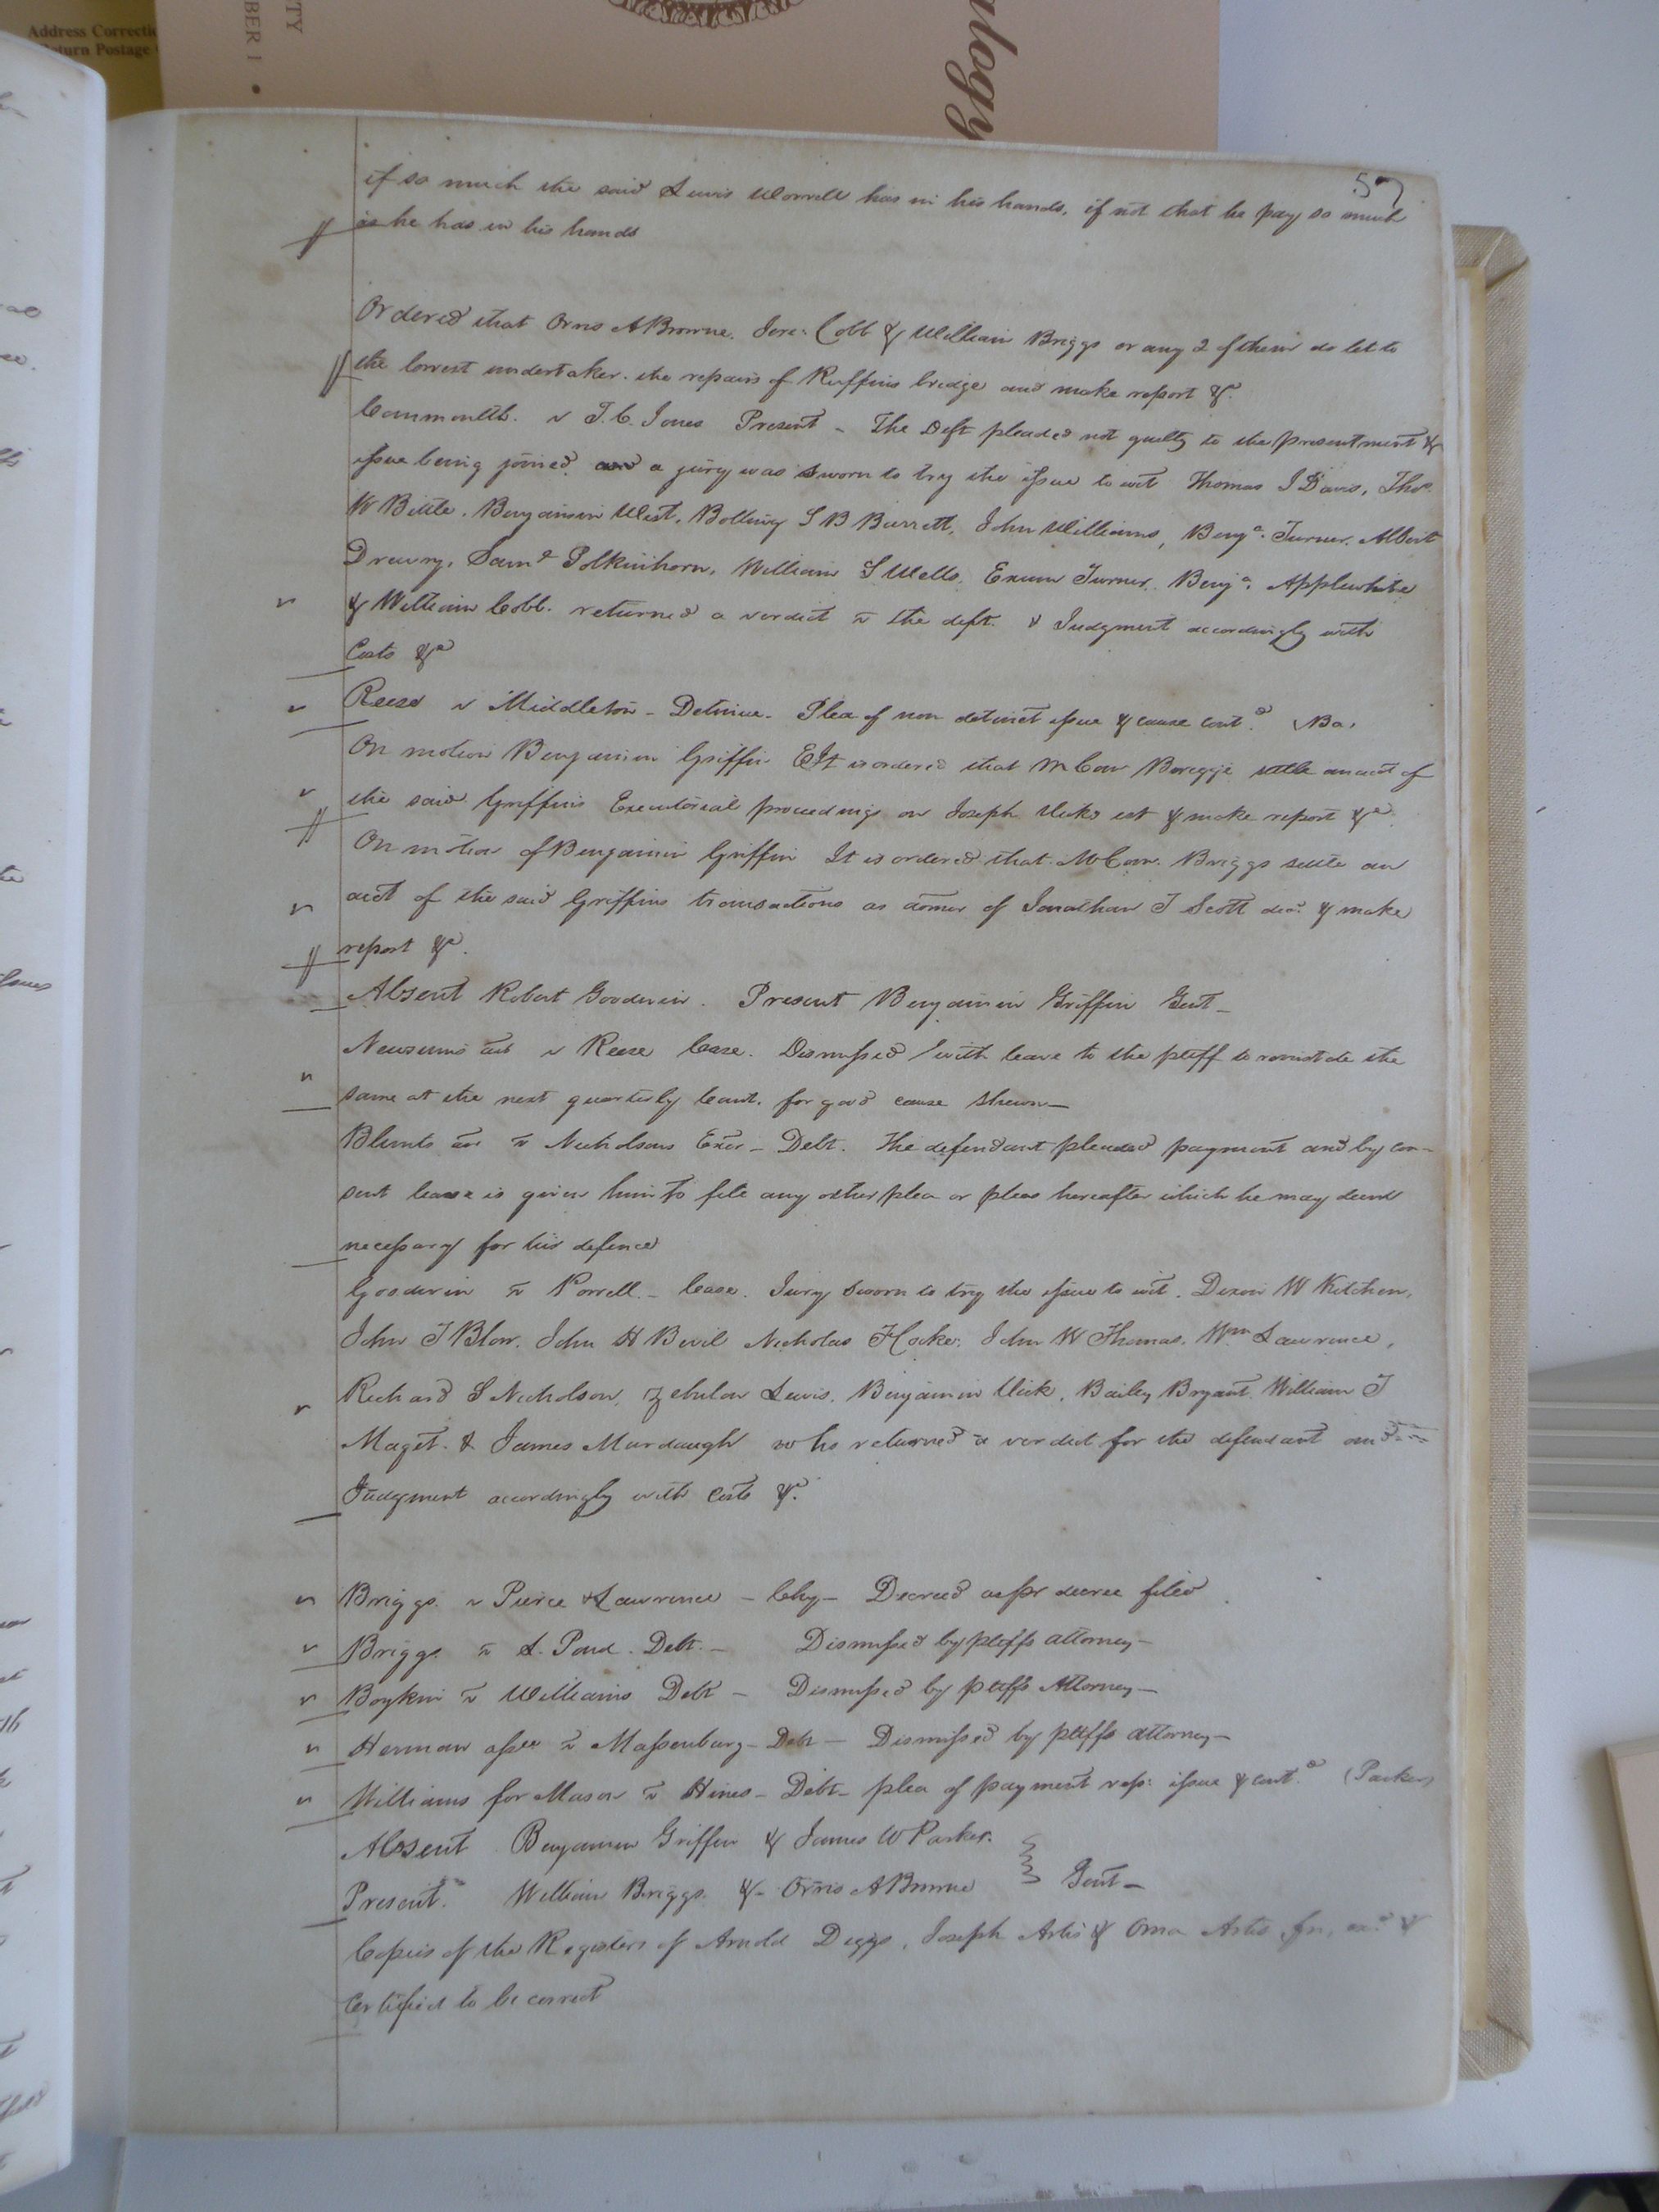 Address Correctio
Return Postage
TY
BER 1 •
ulogy
57
if so much the said Lewis Worrell has in his hands, if not that he pay so much
as he has in his hands
Ordered that Orris A Browne. Jere: Cobb & William Briggs or any 2 of them do let to
the lowest undertaker. the repairs of Ruffins bridge and make report &c.
Commonwlth. v J. C. Jones Present - The Deft pleaded not guilty to the presentment &
issue being joined and a jury was sworn to try the issue to wit Thomas J Davis, Thos.
W Bittle. Benjamin West. Bolling S B Barrett, John Williams, Benja. Turner. Albert
Drewry, Saml Polkinhorn, William S Wells. Exum Turner. Benja. Applewhite
& William Cobb. returned a verdict v the deft. & Judgment accordingly with
Costs &c
Reese v Middleton - Detinue. Plea of non detinet issue & cause contd. (Ba,
On motion Benjamin Griffin It is ordered that M Com Briggs settle an acct of
the said Griffins Executorial proceedings on Joseph Vicks est & make report &c.
On motion of Benjamin Griffin It is ordered that M Com. Briggs settle an
acct of the said Griffins transactions as admr of Jonathan T Scott decd. & make
report &c.
Absent Robert Goodwin. Present Benjamin Griffin Gent -
Newsums v Reese Case. Dismissed with leave to the pltff to reinstate the
same at the next quarterly Court. for good cause shewn -
Blunts v Nicholsons Exor - Debt. The defendant pleaded payment and by con-
sent leave is given him to file any other plea or pleas hereafter which he may deem
necessary for his defence
Goodwin v Porrell. - Case. Jury sworn to try the issue to wit. Dixon W Kitchen,
John T Blow. John H Bevil Nicholas Hocke. John W Thomas. Wm Lawrence,
Richard S Nicholson, Zebulon Lewis. Benjamin Vick. Bailey Bryant. William J
Maget. & James Murdaugh who returned a verdict for the defendant and
Judgment accordingly with Costs &c.
Briggs. v Pierce & Lawrence - Chy - Decreed as pr decree filed
Briggs. v L. Pond. Debt. - Dismissed by pltffs attorney -
Boykin v Williams Debt - Dismissed by pltffs Attorney -
Herman assee v Massenburg - Debt - Dismissed by pltffs attorney -
Williams for Mason v Hines - Debt - plea of payment rep: issue & contd. (Parker)
Absent Benjamin Griffin & James W Parker.
Present. William Briggs. & Orris A Browne Gent -
Copies of the Registers of Arnold Diggs, Joseph Artis & Oma Artis fn, exd. &
Certified to be correct